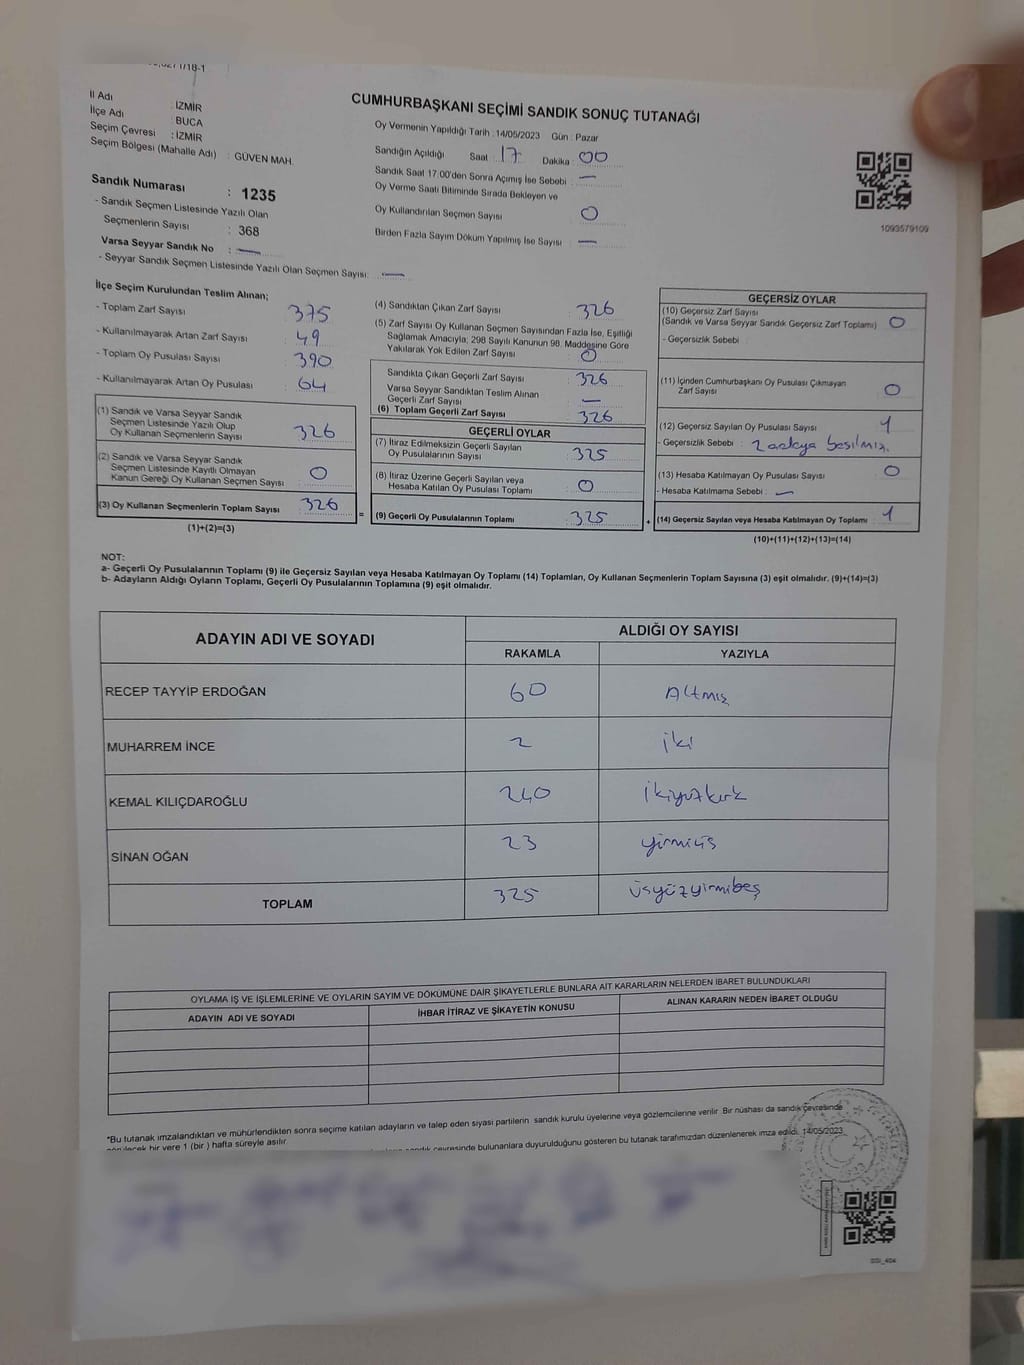 CUMHURBAŞKANI SEÇİMİ SANDIK SONUÇ TUTANAĞI
İl Adı : İZMİR
İlçe Adı : BUCA
Seçim Çevresi : İZMİR
Seçim Bölgesi (Mahalle Adı) : GÜVEN MAH.
Sandık Numarası : 1235
- Sandık Seçmen Listesinde Yazılı Olan
Seçmenlerin Sayısı : 368
Varsa Seyyar Sandık No : —
- Seyyar Sandık Seçmen Listesinde Yazılı Olan Seçmen Sayısı: —
Oy Vermenin Yapıldığı Tarih : 14/05/2023 Gün : Pazar
Sandığın Açıldığı Saat : 17 Dakika : 00
Sandık Saat 17.00'den Sonra Açımış İse Sebebi : —
Oy Verme Saati Bitiminde Sırada Bekleyen ve
Oy Kullandırılan Seçmen Sayısı : 0
Birden Fazla Sayım Döküm Yapılmış İse Sayısı : —
1093579109
İlçe Seçim Kurulundan Teslim Alınan;
- Toplam Zarf Sayısı : 375
- Kullanılmayarak Artan Zarf Sayısı : 49
- Toplam Oy Pusulası Sayısı : 390
- Kullanılmayarak Artan Oy Pusulası : 64
(1) Sandık ve Varsa Seyyar Sandık
Seçmen Listesinde Yazılı Olup
Oy Kullanan Seçmenlerin Sayısı : 326
(2) Sandık ve Varsa Seyyar Sandık
Seçmen Listesinde Kayıtlı Olmayan
Kanun Gereği Oy Kullanan Seçmen Sayısı : 0
(3) Oy Kullanan Seçmenlerin Toplam Sayısı : 326
(1)+(2)=(3)
(4) Sandıktan Çıkan Zarf Sayısı : 326
(5) Zarf Sayısı Oy Kullanan Seçmen Sayısından Fazla İse, Eşitliği
Sağlamak Amacıyla; 298 Sayılı Kanunun 98. Maddesine Göre
Yakılarak Yok Edilen Zarf Sayısı : 0
Sandıkta Çıkan Geçerli Zarf Sayısı : 326
Varsa Seyyar Sandıktan Teslim Alınan
Geçerli Zarf Sayısı : —
(6) Toplam Geçerli Zarf Sayısı : 326
GEÇERLİ OYLAR
(7) İtiraz Edilmeksizin Geçerli Sayılan
Oy Pusulalarının Sayısı : 325
(8) İtiraz Üzerine Geçerli Sayılan veya
Hesaba Katılan Oy Pusulası Toplamı : 0
= (9) Geçerli Oy Pusulalarının Toplamı : 325 +
GEÇERSİZ OYLAR
(10) Geçersiz Zarf Sayısı
(Sandık ve Varsa Seyyar Sandık Geçersiz Zarf Toplamı) : 0
- Geçersizlik Sebebi :
(11) İçinden Cumhurbaşkanı Oy Pusulası Çıkmayan
Zarf Sayısı : 0
(12) Geçersiz Sayılan Oy Pusulası Sayısı : 1
- Geçersizlik Sebebi : 2 adaya basılmış.
(13) Hesaba Katılmayan Oy Pusulası Sayısı : 0
- Hesaba Katılmama Sebebi : —
(14) Geçersiz Sayılan veya Hesaba Katılmayan Oy Toplamı : 1
(10)+(11)+(12)+(13)=(14)
NOT:
a- Geçerli Oy Pusulalarının Toplamı (9) ile Geçersiz Sayılan veya Hesaba Katılmayan Oy Toplamı (14) Toplamları, Oy Kullanan Seçmenlerin Toplam Sayısına (3) eşit olmalıdır. (9)+(14)=(3)
b- Adayların Aldığı Oyların Toplamı, Geçerli Oy Pusulalarının Toplamına (9) eşit olmalıdır.
ADAYIN ADI VE SOYADI ALDIĞI OY SAYISI
RAKAMLA YAZIYLA
RECEP TAYYİP ERDOĞAN 60 Altmış
MUHARREM İNCE 2 iki
KEMAL KILIÇDAROĞLU 240 ikiyüzkırk
SİNAN OĞAN 23 yirmiüç
TOPLAM 325 üçyüzyirmibeş
OYLAMA İŞ VE İŞLEMLERİNE VE OYLARIN SAYIM VE DÖKÜMÜNE DAİR ŞİKAYETLERLE BUNLARA AİT KARARLARIN NELERDEN İBARET BULUNDUKLARI
ADAYIN ADI VE SOYADI İHBAR İTİRAZ VE ŞİKAYETİN KONUSU ALINAN KARARIN NEDEN İBARET OLDUĞU
*Bu tutanak imzalandıktan ve mühürlendikten sonra seçime katılan adayların ve talep eden siyasi partilerin sandık kurulu üyelerine veya gözlemcilerine verilir. Bir nüshası da sandık çevresinde
bir yere 1 (bir ) hafta süreyle asılır.
sandık çevresinde bulunanlara duyurulduğunu gösteren bu tutanak tarafımızdan düzenlenerek imza edildi. 14/05/2023